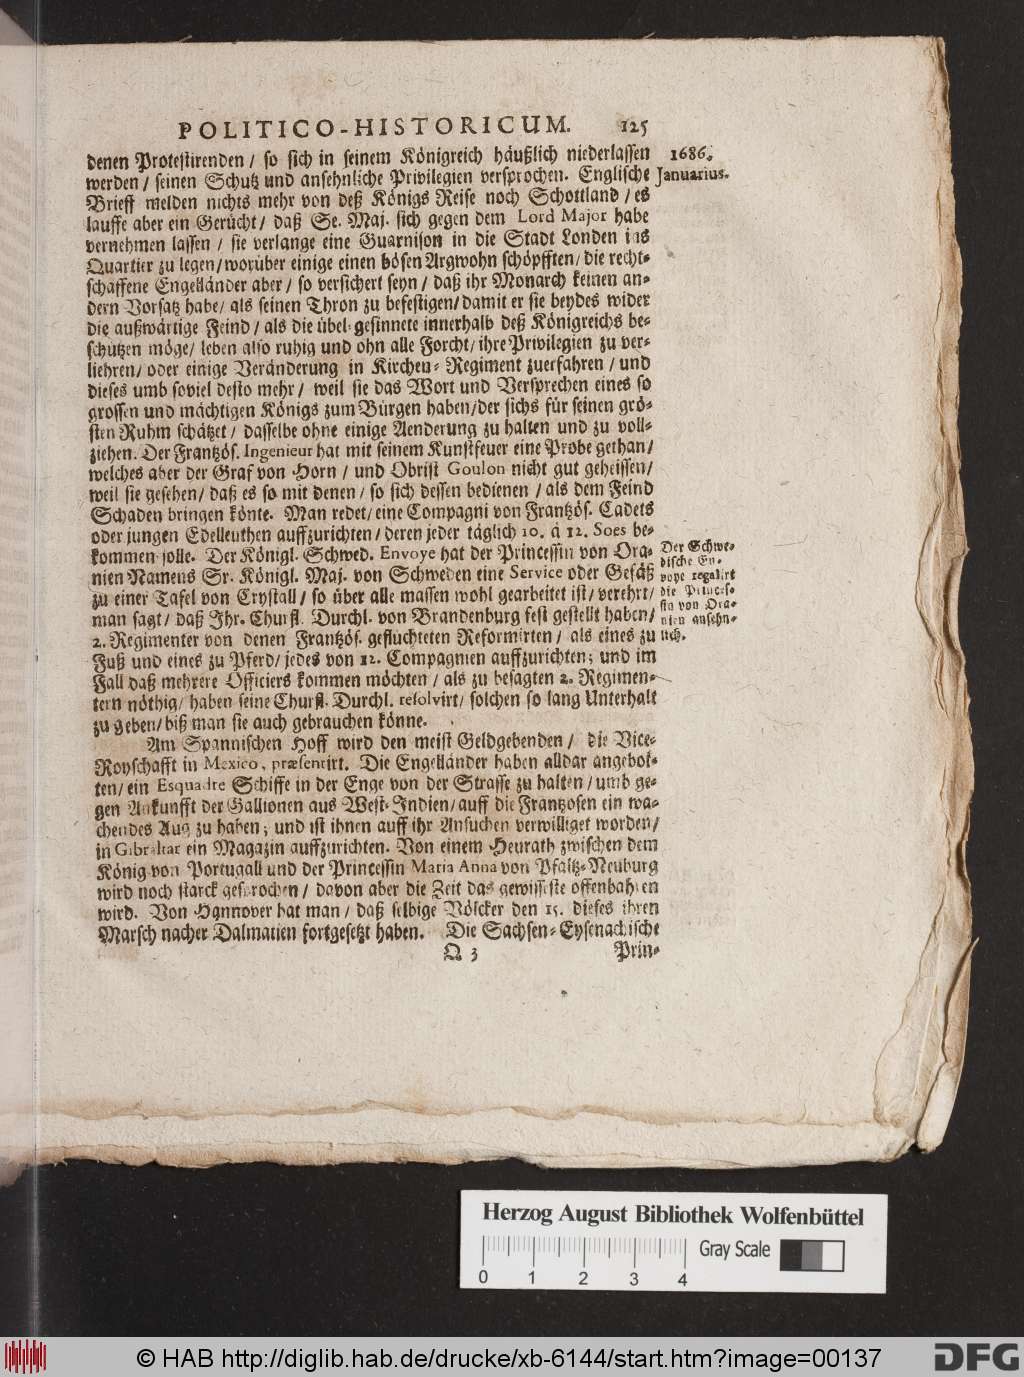 POLITICO-HISTORICUM. 125
denen Protestirenden / so sich in seinem Königreich häußlich niederlassen
1686.
werden / seinen Schutz und ansehnliche Privilegien versprochen. Englische
Januarius.
Brieff melden nichts mehr von deß Königs Reise noch Schottland / es
lauffe aber ein Gerücht / daß Se. Maj. sich gegen dem Lord Major habe
vernehmen lassen / sie verlange eine Guarnison in die Stadt Londen ins
Quartier zu legen / worüber einige einen bösen Argwohn schöpfften / die recht-
schaffene Engelländer aber / so versichert seyn / daß ihr Monarch keinen an-
dern Vorsatz habe / als seinen Thron zu befestigen / damit er sie beydes wider
die außwärtige Feind / als die übel-gesinnete innerhalb deß Königreichs be-
schützen möge / leben also ruhig und ohn alle Forcht / ihre Privilegien zu ver-
liehren / oder einige Veränderung in Kirchen-Regiment zuerfahren / und
dieses umb soviel desto mehr / weil sie das Wort und Versprechen eines so
grossen und mächtigen Königs zum Bürgen haben / der sichs für seinen grö-
sten Ruhm schätzet / dasselbe ohne einige Aenderung zu halten und zu voll-
ziehen. Der Frantzös. Ingenieur hat mit seinem Kunstfeuer eine Probe gethan /
welches aber der Graf von Horn / und Obrist Goulon nicht gut geheissen /
weil sie gesehen / daß es so mit denen / so sich dessen bedienen / als dem Feind
Schaden bringen könte. Man redet / eine Compagni von Frantzös. Cadets
oder jungen Edelleuthen auffzurichten / deren jeder täglich 10. à 12. Soes be-
kommen solle. Der Königl. Schwed. Envoye hat der Princessin von Ora-
nien Namens Sr. Königl. Maj. von Schweden eine Service oder Gefäß
zu einer Tafel von Crystall / so über alle massen wohl gearbeitet ist / verehrt /
man sagt / daß Ihr. Churfl. Durchl. von Brandenburg fest gestellt haben /
2. Regimenter von denen Frantzös. geflüchteten Reformirten / als eines zu
Der Schwe-
dische En-
voye regalirt
die Princes-
sin von Ora-
nien ansehn-
lich.
Fuß und eines zu Pferd / jedes von 12. Compagnien auffzurichten; und im
Fall daß mehrere Officiers kommen möchten / als zu besagten 2. Regimen-
tern nöthig / haben seine Churfl. Durchl. resolvirt / solchen so lang Unterhalt
zu geben / biß man sie auch gebrauchen könne.
Am Spannischen Hoff wird den meist Geldgebenden / die Vice-
Royschafft in Mexico, præsentirt. Die Engelländer haben alldar angebot-
ten / ein Esquadre Schiffe in der Enge von der Strasse zu halten / umb ge-
gen Ankunfft der Gallionen aus West-Indien / auff die Frantzosen ein wa-
chendes Aug zu haben; und ist ihnen auff ihr Ansuchen verwilliget worden /
in Gibraltar ein Magazin auffzurichten. Von einem Heurath zwischen dem
König von Portugall und der Princessin Maria Anna von Pfaltz-Neuburg
wird noch starck gesprochen / davon aber die Zeit das gewisseste offenbahren
wird. Von Hannover hat man / daß selbige Völcker den 15. dieses ihren
Marsch nacher Dalmatien fortgesetzt haben. Die Sachsen-Eysenachische
Q 3 Prin-
Herzog August Bibliothek Wolfenbüttel
Gray Scale
0 1 2 3 4
© HAB http://diglib.hab.de/drucke/xb-6144/start.htm?image=00137
DFG